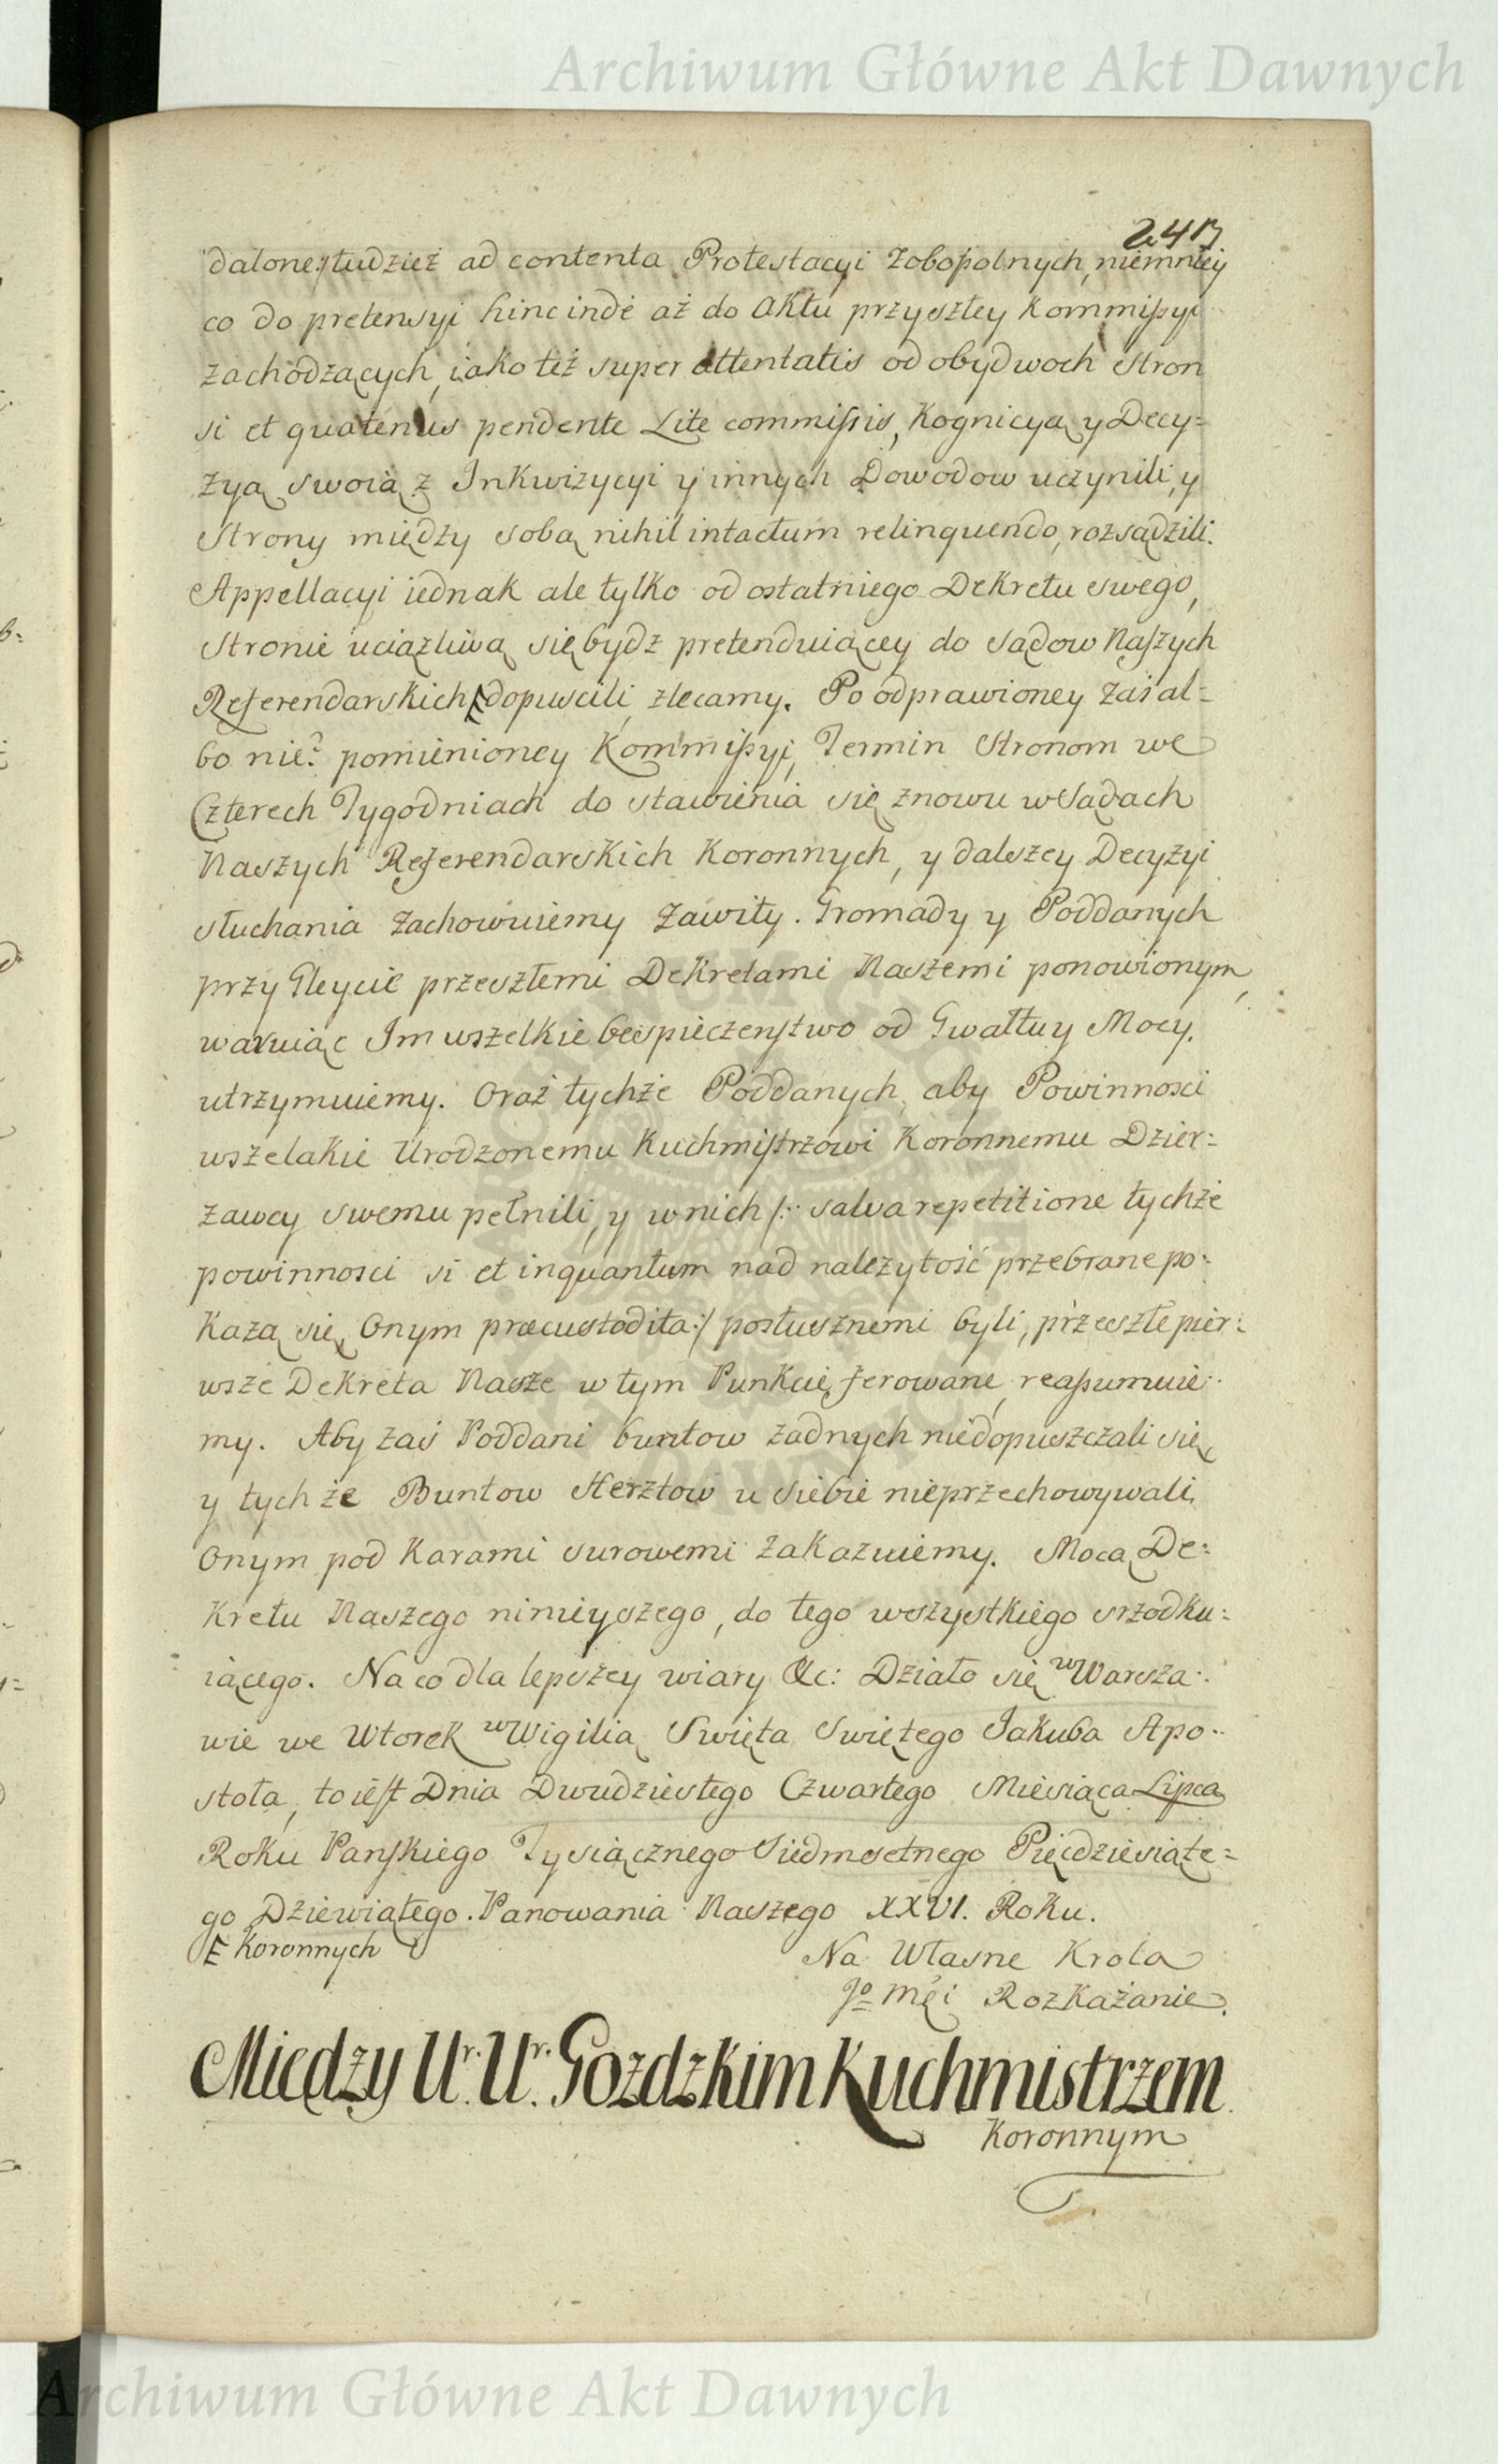 Archiwum Główne Akt Dawnych
243
dalone:/ tudzież ad contenta Protestacyi Zobopolnych, niemniey
co do pretensyi hinc inde aż do Aktu przyszłey Kommissyi
zachodzących, iako też super attentatis od obydwoch Stron
si et quatenus pendente Lite commissis, Kognicyą y Decy=
zyą swoią z Inkwizycyi y innych Dowodow uczynili, y
Strony między sobą nihil intactum relinquendo, rozsądzili.
Appellacyi iednak ale tylko od ostatniego Dekretu swego,
Stronie uciążliwą się bydz pretenduiącey do Sądow Naszych
Referendarskich dopuscili, zlecamy. Po odprawioney zaś al=
bo nie? pomienioney Kommissyi, Termin Stronom we
Czterech Tygodniach do stawienia się znowu w Sądach
Naszych Referendarskich Koronnych, y dalszey Decyzyi
słuchania zachowuiemy Zawity. Gromady y Poddanych
przy Gleycie przeszłemi Dekretami Naszemi ponowionym,
waruiąc Im wszelkie bespieczenstwo od Gwałtu y Mocy,
utrzymuiemy. Oraz tychże Poddanych, aby Powinnosci
wszelakie Urodzonemu Kuchmistrzowi Koronnemu Dzier=
zawcy swemu pełnili, y w nich /: salva repetitione tychże
powinnosci si et inquantum nad nalezytość przebrane po=
każą się, Onym præcustodita:/ posłusznemi byli, przeszłe pier=
wsze Dekreta Nasze w tym Punkcie ferowane, reassumuie=
my. Aby zaś Poddani buntow żadnych niedopuszczali się,
y tychże Buntow Hersztow u siebie nieprzechowywali,
Onym pod Karami surowemi zakazuiemy. Mocą De=
kretu Naszego ninieyszego, do tego wszystkiego srzodku=
iącego. Na co dla lepszey wiary &c: Działo się w Warsza=
wie we Wtorek w Wigilią Swięta Swiętego Jakuba Apo=
stoła, to iest Dnia Dwudziestego Czwartego Miesiąca Lipca
Roku Panskiego Tysiącznego Siedmsetnego Pięcdziesiąte=
go Dziewiątego. Panowania Naszego XXVI. Roku.
Koronnych
Na Własne Krola
Jo Męi Rozkażanie.
Między Ur. Ur. Gozdzkim Kuchmistrzem
Koronnym
Archiwum Główne Akt Dawnych